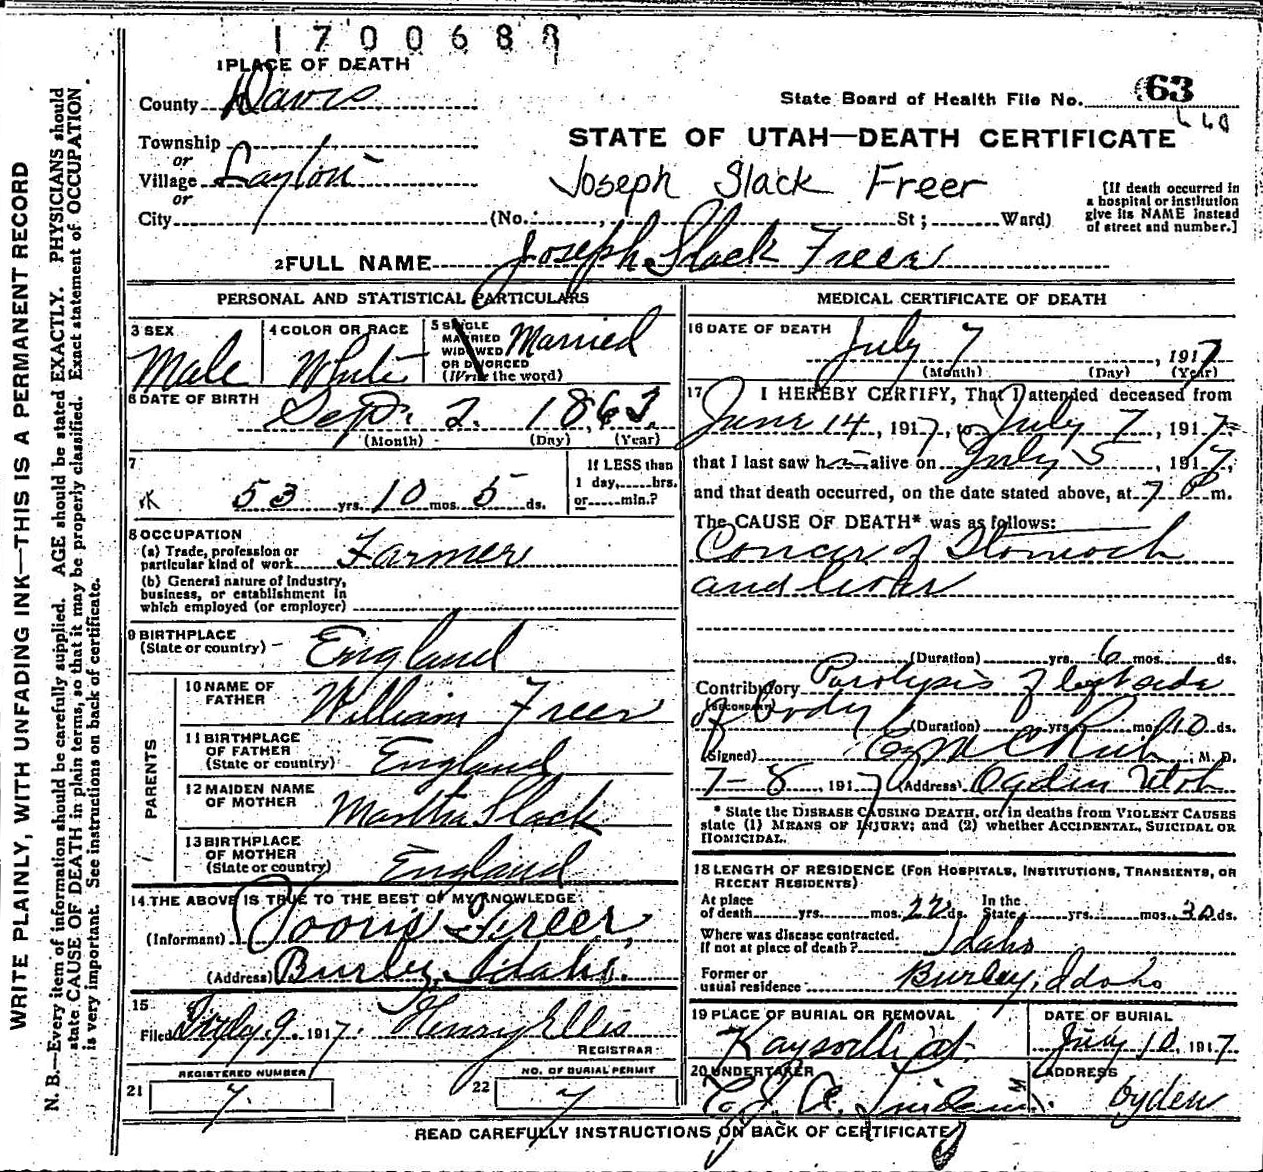 1700688
1 PLACE OF DEATH
County Davis
State Board of Health File No. 63
Township
or
Village Layton
or
City (No. St; Ward)
STATE OF UTAH—DEATH CERTIFICATE
Joseph Slack Freer
[If death occurred in
a hospital or institution
give its NAME instead
of street and number.]
2 FULL NAME Joseph Slack Freer
PERSONAL AND STATISTICAL PARTICULARS
3 SEX
Male
4 COLOR OR RACE
White
5 SINGLE
MARRIED
WIDOWED
OR DIVORCED
(Write the word)
Married
6 DATE OF BIRTH
Sept. 2. 1863
(Month) (Day) (Year)
7
53 yrs. 10 mos. 5 ds.
If LESS than
1 day, hrs.
or min.?
8 OCCUPATION
(a) Trade, profession or
particular kind of work Farmer
(b) General nature of industry,
business, or establishment in
which employed (or employer)
9 BIRTHPLACE
(State or country) England
PARENTS
10 NAME OF
FATHER William Freer
11 BIRTHPLACE
OF FATHER
(State or country) England
12 MAIDEN NAME
OF MOTHER Martha Slack
13 BIRTHPLACE
OF MOTHER
(State or country) England
14 THE ABOVE IS TRUE TO THE BEST OF MY KNOWLEDGE
(Informant) Freer,
(Address) Burley, Idaho.
15
Filed July 9. 1917. Henry Ellis
REGISTRAR
21 REGISTERED NUMBER
7.
22 NO. OF BURIAL PERMIT
7
MEDICAL CERTIFICATE OF DEATH
16 DATE OF DEATH
July 7, 1917
(Month) (Day) (Year)
17 I HEREBY CERTIFY, That I attended deceased from
June 14, 1917, to July 7, 1917,
that I last saw him alive on July 5, 1917,
and that death occurred, on the date stated above, at 7 P m.
The CAUSE OF DEATH* was as follows:
Cancer of Stomach
and liver
(Duration) yrs. 6 mos. ds.
Contributory Paralysis of left side
(SECONDARY)
of body (Duration) yrs. mos. 10 ds.
(Signed) M. D.
7-8, 1917 (Address) Ogden Utah
* State the DISEASE CAUSING DEATH, or, in deaths from VIOLENT CAUSES
state (1) MEANS OF INJURY; and (2) whether ACCIDENTAL, SUICIDAL OR
HOMICIDAL.
18 LENGTH OF RESIDENCE (FOR HOSPITALS, INSTITUTIONS, TRANSIENTS, OR
RECENT RESIDENTS)
At place
of death yrs. mos. 22 ds. In the
State, yrs. mos. 30 ds.
Where was disease contracted.
If not at place of death? Idaho
Former or
usual residence Burley, Idaho
19 PLACE OF BURIAL OR REMOVAL
Kaysville
DATE OF BURIAL
July 10, 1917
20 UNDERTAKER
ADDRESS
Ogden
READ CAREFULLY INSTRUCTIONS ON BACK OF CERTIFICATE
WRITE PLAINLY, WITH UNFADING INK—THIS IS A PERMANENT RECORD
N. B.—Every item of information should be carefully supplied. AGE should be stated EXACTLY. PHYSICIANS should
state CAUSE OF DEATH in plain terms, so that it may be properly classified. Exact statement of OCCUPATION
is very important. See instructions on back of certificate.